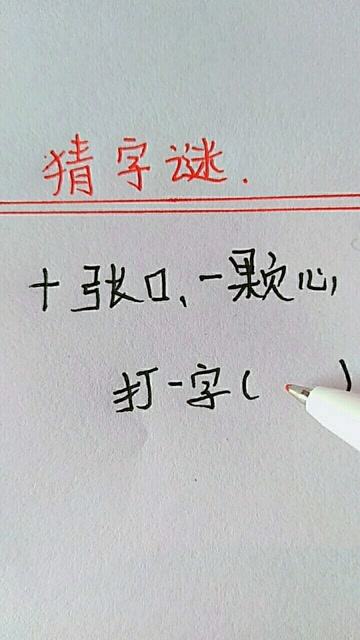 猜字谜.
十张口、一颗心,
打一字( )